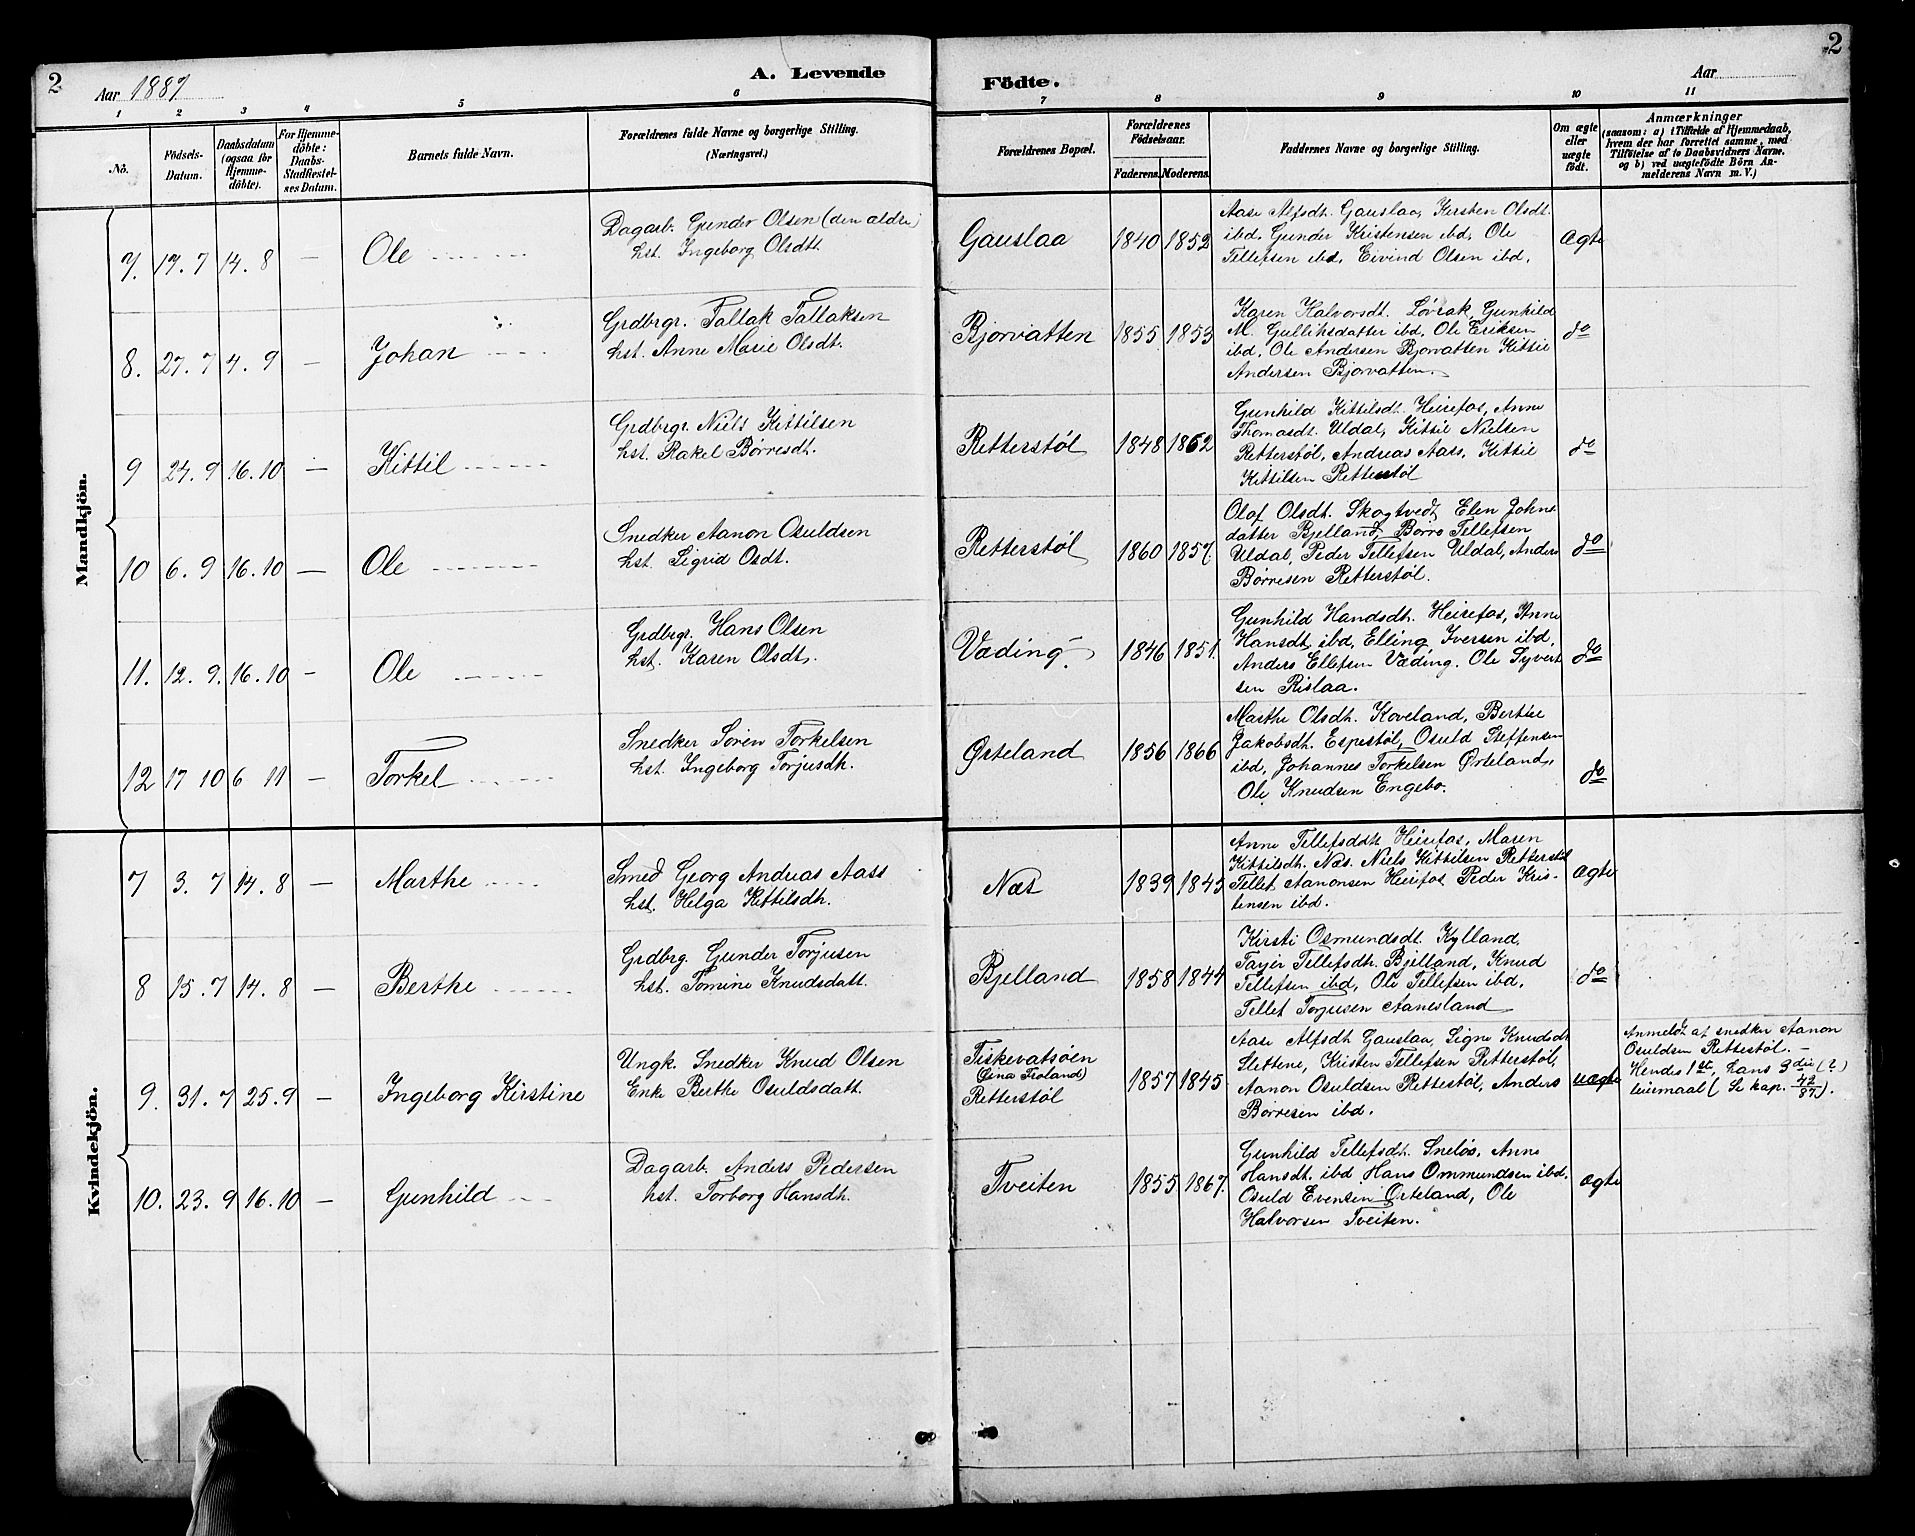 2
Aar 1887
A. Levende
Födte.
Aar
2
1 2 3 4 5 6 7 8 9 10 11
No.
Födsels-
Datum.
Daabsdatum
(ogsaa for
Hjemme-
döbte).
For Hjemme-
döbte:
Daabs-
Stadfæstel-
ses Datum.
Barnets fulde Navn.
Forældrenes fulde Navne og borgerlige Stilling.
(Næringsvei.)
Forældrenes Bopæl.
Forældrenes
Födselsaar.
Faderens. Moderens.
Faddernes Navne og borgerlige Stilling.
Om ægte
eller
uægte
født.
Anmærkninger
(saasom: a) i Tilfælde af Hjemmedaab,
hvem der har forrettet samme, med
Tilföielse af to Daabsvidners Navne,
og b) ved uægtefödte Börn An-
melderens Navn m. V.)
Mandkjön.
7. 17. 7 14. 8 — Ole
Dagarb. Gunder Olsen (den ældre)
hst. Ingeborg Olsdt.
Gauslaa 1840 1852
Aase Alfsdt. Gauslaa, Kirsten Olsdt.
ibd, Gunder Kristensen ibd, Ole
Tellefsen ibd, Eivind Olsen ibd.
Ægte
8. 27. 7 4. 9 — Johan
Grdbrgr. Tallak Tallaksen
hst. Anne Marie Olsdt.
Bjorvatten 1855 1853
Karen Halvorsdt. Løvrak, Gunhild
M. Gulliksdatter ibd, Ole Eriksen
ibd, Ole Andersen Bjorvatten Kittil
Andersen Bjorvatten.
do
9 24. 9 16. 10 — Kittil
Grdbrgr. Niels Kittilsen
hst. Rakel Børresdt.
Retterstøl 1848 1862
Gunhild Kittilsdt. Heirefos, Anne
Thomasdt. Uldal, Kittil Nielsen
Retterstøl, Andreas Aass, Kittil
Kittilsen Retterstøl
do
10 6. 9 16. 10 — Ole
Snedker Aanon Osuldsen
hst. Sigrid Osdt.
Retterstøl 1860 1857.
Olaf Olsdt. Skogtvedt, Elen Johns
datter Bjelland, Børre Tellefsen
Uldal, Peder Tellefsen Uldal, Anders
Børresen Retterstøl.
do
11. 12. 9. 16. 10 — Ole
Grdbrgr. Hans Olsen
hst. Karen Olsdt.
Væding. 1846 1851.
Gunhild Handsdt. Heirefos, Anne
Hansdt ibd, Elling Iversen ibd,
Anders Ellefsen Væding. Ole Syvert
sen Rislaa.
do
12 17 10 6 11 — Torkel
Snedker Sören Torkelsen
hst. Ingeborg Torjusdt.
Ørteland 1856 1866
Marthe Olsdt. Koveland, Berthe
Jakobsdt. Espestøl, Osuld Steffensen
ibd, Johannes Torkelsen Ørteland,
Ole Knudsen Engebo.
do
Kvindekjön.
7 3. 7 14. 8 — Marthe
Smed Georg Andreas Aass
hst. Helga Kittilsdt.
Næs 1839 1845
Anne Tellefsdt Heirefos, Maren
Kittilsdt. Næs. Niels Kittilsen Retterstøl
Tellef Aanonsen Heirefos Peder Kris-
tensen ibd.
Ægte
8 15. 7 14. 8 — Berthe
Grdbrg. Gunder Torjusen
hst. Tomine Knudsdatt.
Bjelland 1858 1844
Kirsti Osmundsdt. Kylland,
Tarjer Tellefsdt. Bjelland, Knud
Tellefsen ibd, Ole Tellefsen ibd,
Tellef Torjusen Aanesland
do
9. 31. 7 25. 9 — Ingeborg Kirstine
Ungk. Snedker Knud Olsen
Enke Berthe Osuldsdatt.
Fiskevatsøen
(Eina Froland)
Retterstøl
1857 1845
Aase Alfsdt Gauslaa, Signe Knudsdt
Slettene, Kristen Tellefsen Retterstøl,
Aanon Osuldsen Retterstøl, Anders
Børresen ibd.
uægte
Anmeldt af snedker Aanon
Osuldsen Retterstøl. —
Hendes 1ste, hans 3die (?)
leiermaal (Se kap. 42/87).
10. 23. 9 16. 10 — Gunhild
Dagarb. Anders Pedersen
hst. Torborg Hansdt.
Tveiten 1855 1867.
Gunhild Tellefsdt. Sneløs, Anne
Hansdt. ibd Hans Ommundsen ibd,
Osuld Evensen Ørteland, Ole
Halvorsen Tveiten.
Ægte